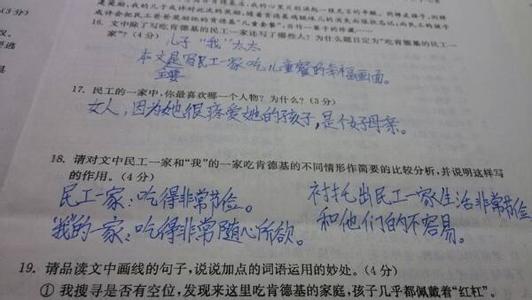 16. 文中除了写吃肯德基的民工一家还写了哪些人？为什么题目定为“吃肯德基的民工一
家”？(4分)
儿子 “我” 太太
本文是写民工一家吃儿童餐的幸福画面。
主要
17. 民工的一家中，你最喜欢哪一个人物？为什么？(3分)
女人，因为她很疼爱她的孩子，是个好母亲。
18. 请对文中民工一家和“我”的一家吃肯德基的不同情形作简要的比较分析，并说明这样写
的作用。(4分)
民工一家：吃得非常节俭。 衬托出民工一家生活非常节俭
“我”的一家：吃得非常随心所欲。 和他们的不容易。
19. 请品读文中画线的句子，说说加点的词语运用的妙处。(4分)
① 我搜寻是否有空位，发现来这里吃肯德基的家庭，孩子几乎都佩戴着“红杠”。